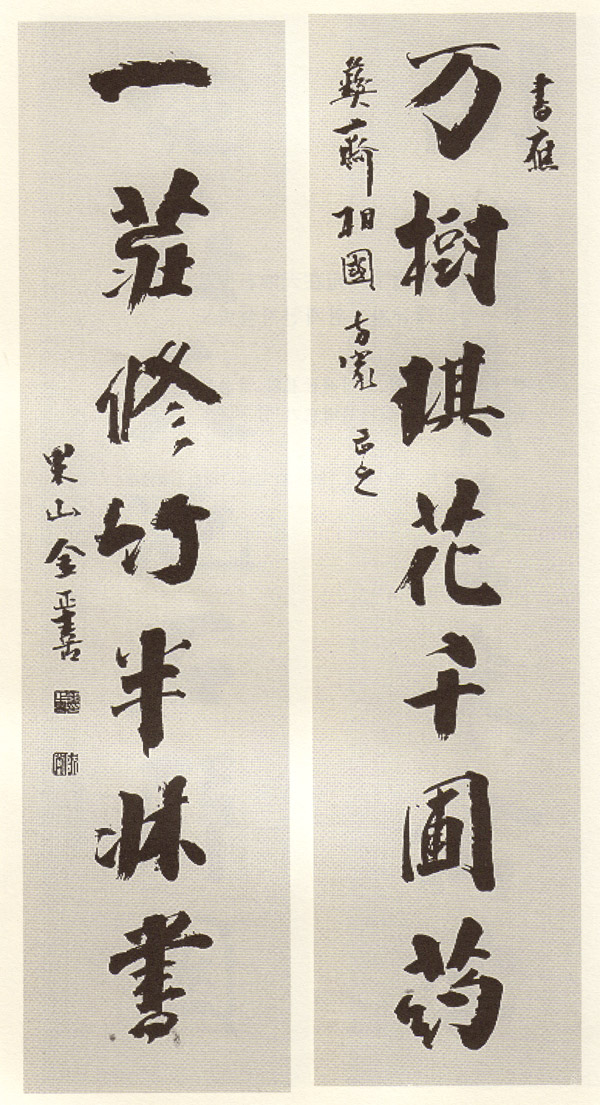 書應
万樹琪花千圃葯
彝齋相國方家正之
一莊修竹半牀書
果山金正喜